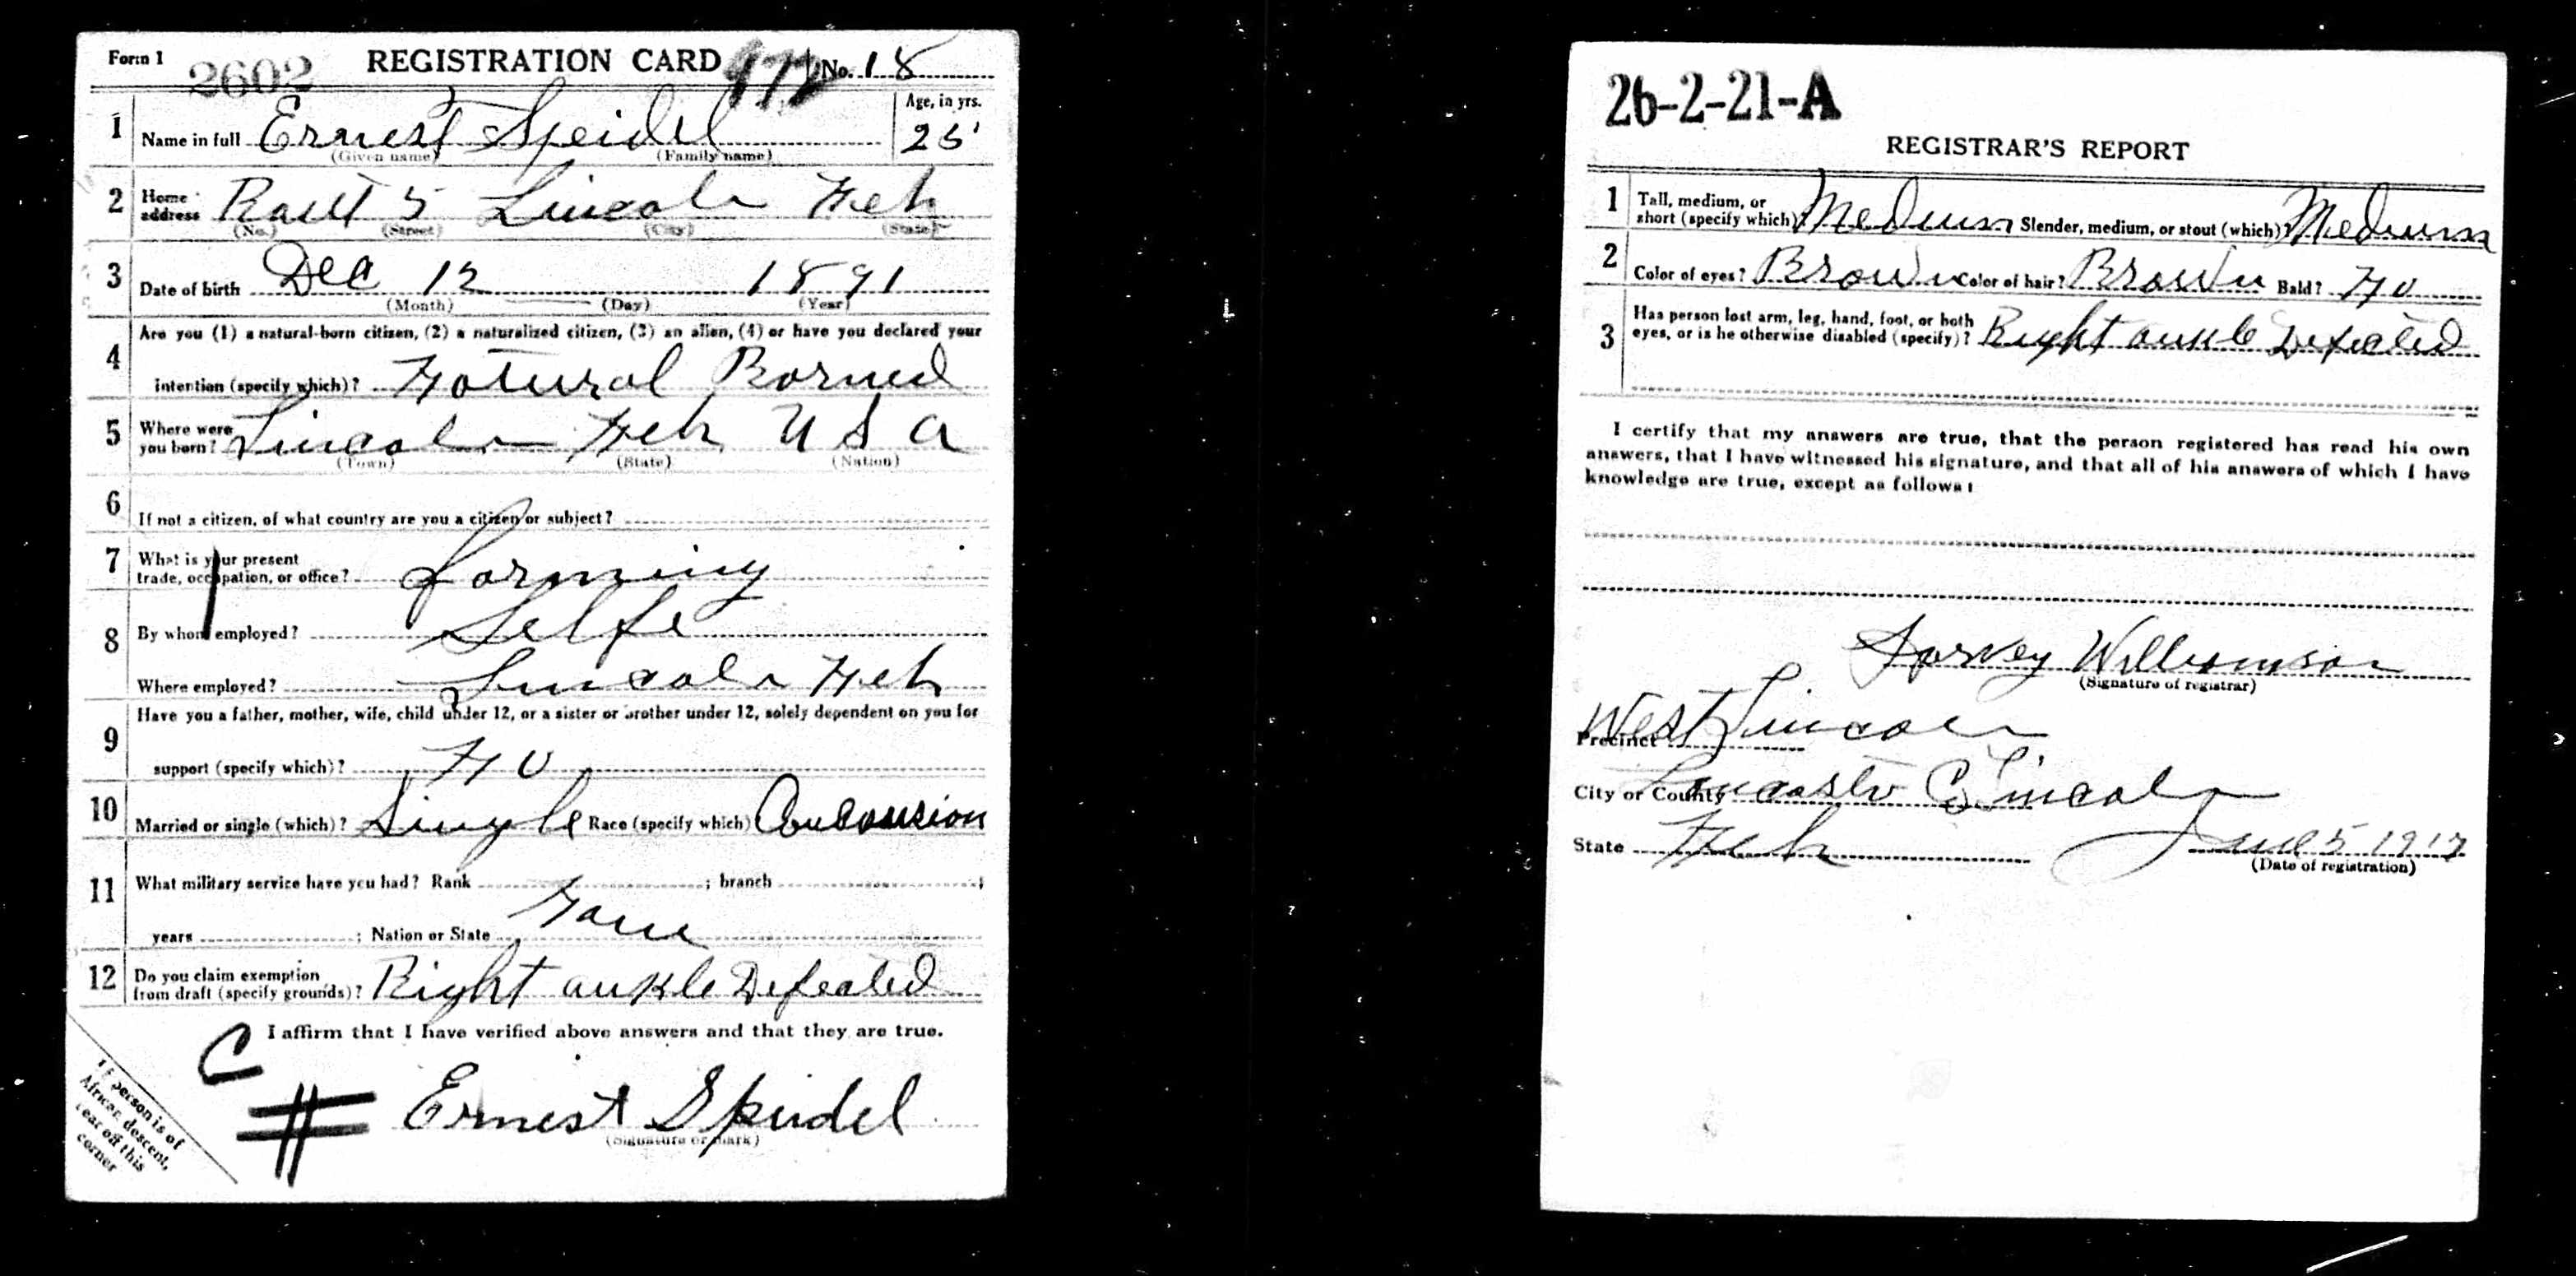 Form 1 2602 REGISTRATION CARD 472 No. 18
1 Name in full Ernest Speidel Age, in yrs. 25
(Given name) (Family name)
2 Home address Raut 5 Lincoln Neb
(No.) (Street) (City) (State)
3 Date of birth Dec 12 1891
(Month) (Day) (Year)
4 Are you (1) a natural-born citizen, (2) a naturalized citizen, (3) an alien, (4) or have you declared your
intention (specify which)? Natural Borned
5 Where were you born? Lincoln Neb U S A
(Town) (State) (Nation)
6 If not a citizen, of what country are you a citizen or subject?
7 What is your present
trade, occupation, or office? Farming
8 By whom employed? Selfe
Where employed? Lincoln Neb
9 Have you a father, mother, wife, child under 12, or a sister or brother under 12, solely dependent on you for
support (specify which)? No
10 Married or single (which)? Single Race (specify which)
11 What military service have you had? Rank ; branch ;
years ; Nation or State None
12 Do you claim exemption
from draft (specify grounds)? Right ankle Defeated
I affirm that I have verified above answers and that they are true.
C
Ernest Speidel
(Signature or mark)
If person is of
African descent,
tear off this
corner
26-2-21-A
REGISTRAR'S REPORT
1 Tall, medium, or
short (specify which)? Medium Slender, medium, or stout (which)? Medium
2 Color of eyes? Brown Color of hair? Brown Bald? No
3 Has person lost arm, leg, hand, foot, or both
eyes, or is he otherwise disabled (specify)? Right ankle Defeated
I certify that my answers are true, that the person registered has read his own
answers, that I have witnessed his signature, and that all of his answers of which I have
knowledge are true, except as follows:
Harvey Williamson
(Signature of registrar)
Precinct West Lincoln
City or County Lancaster Co Lincoln
State Neb June 5 1917
(Date of registration)